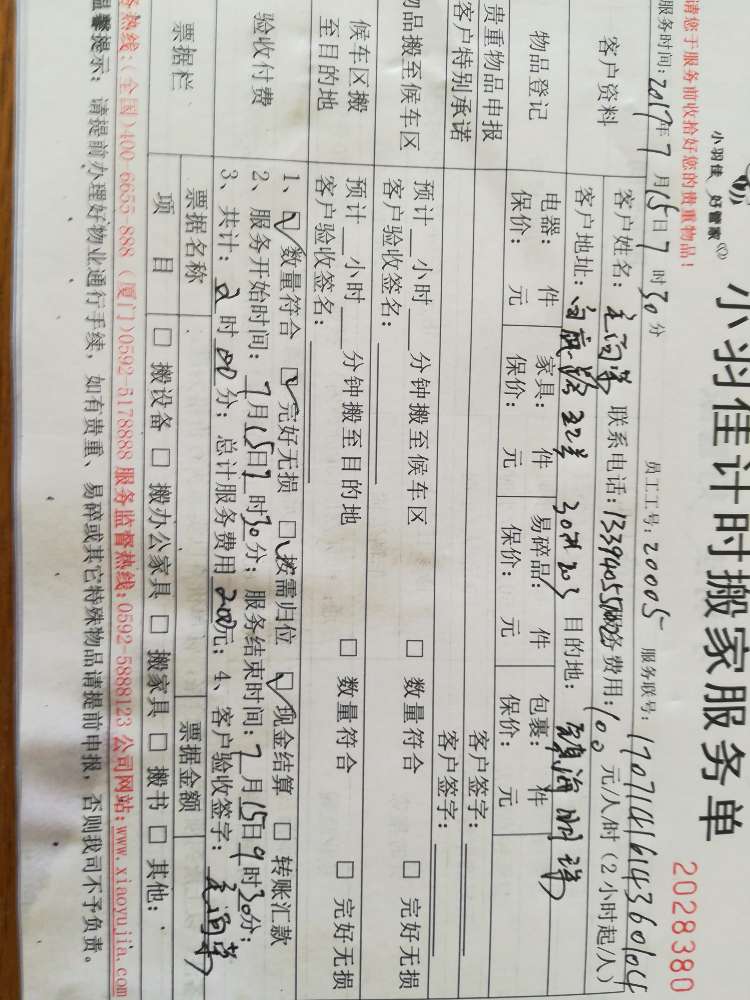 小羽佳 好管家
小羽佳计时搬家服务单
2028380
请您于服务前收拾好您的贵重物品！
服务时间：2017年7月15日7时30分 员工工号：20005 服务联号：
客户资料 客户姓名： 联系电话： 服务费用：100元/人/时（2小时起/人）
客户地址： 目的地：
物品登记 电器： 件 家具： 件 易碎品： 件 包裹： 件
保价： 元 保价： 元 保价： 元 保价： 元
贵重物品申报 客户签字：
客户特别承诺 客户签字：
物品搬至候车区 预计__小时___分钟搬至候车区 □ 数量符合 □ 完好无损
客户验收签名：
候车区搬至目的地 预计__小时___分钟搬至目的地 □ 数量符合 □ 完好无损
客户验收签名：
验收付费 1、☑ 数量符合 ☑ 完好无损 ☑ 按需归位 ☑ 现金结算 □ 转账汇款
2、服务开始时间：7月15日7时30分；服务结束时间：7月15日9时30分；
3、共计：2时00分；总计服务费用200元；4、客户验收签字：
票据栏 票据名称 票据金额
项 目 □ 搬设备 □ 搬办公家具 □ 搬家具 □ 搬书 □ 其他：
务热线：(全国)400-6655-888 (厦门)0592-5178888 服务监督热线：0592-5888123 公司网站：www.xiaoyujia.com
温馨提示：请提前办理好物业通行手续，如有贵重、易碎或其它特殊物品请提前申报，否则我司不予负责。